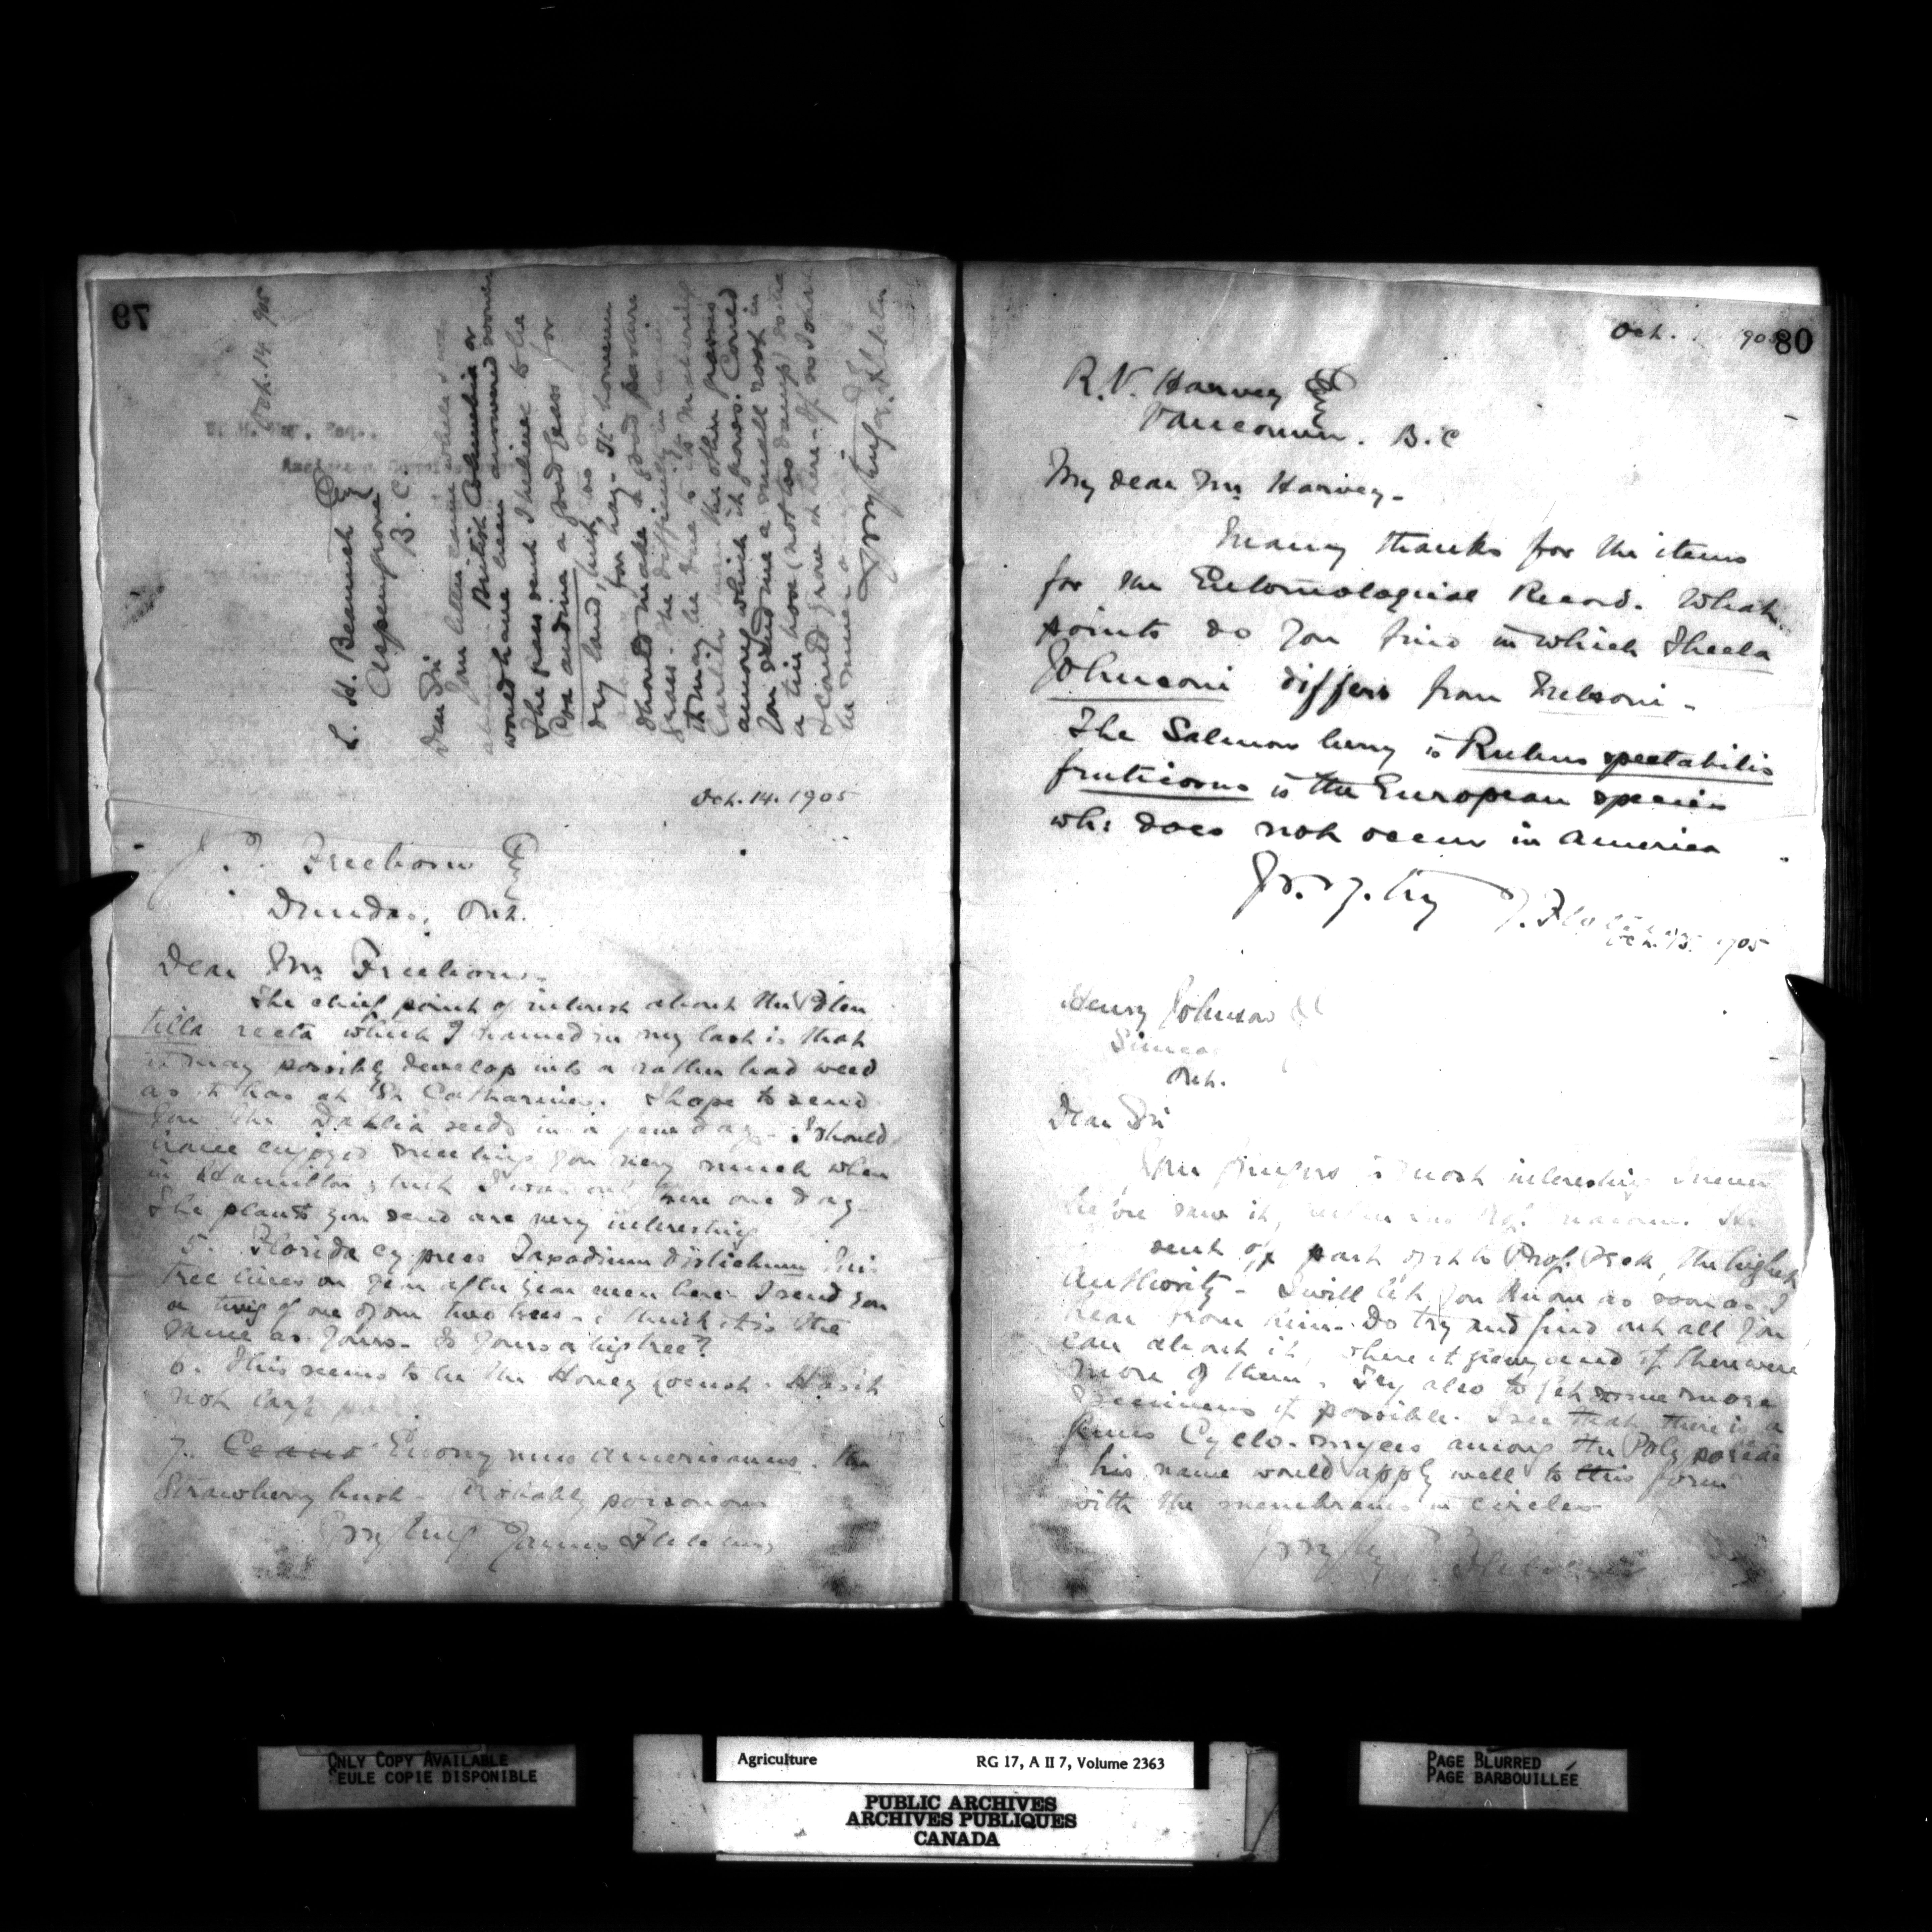 79
Oct. 14 905
W. H. Esq.,
L. H. Beamish Esq
Aspen grove
B.C.
Dear Sir
Your letter came while I was
British Columbia or
would have been answered sooner
The grass sent I believe to be
Poa andina a good grass for
dry land, but as
for hay. It however
should make a good pasture
grass. The difficulty in
it may be due to its maturing
earlier than the other grasses
among which it grows. Could
you send me a small root in
a tin box (not too damp) so tha
I could grow it here. If no I shall
be
Yours truly J. Fletcher
Oct. 14. 1905
Freeborn Esq
Dundas, Ont.
Dear Mr Freeborn-
The chief point of interest about the Poten
tilla recta which I named in my last is that
it may possibly develop into a rather bad weed
as it has at St Catharines. I hope to send
you the Dahlia seeds in a few days - I should
have enjoyed meeting you very much when
in Hamilton but I was only there one day-
The plants you send are very interesting
5. Florida cypress Taxodium distichum This
tree lives on year after year even here. I send you
a twig of one of our two trees - I think it is the
same as yours - Is yours a big tree?
6. This seems to be the Honey Locust. Has it
not large
7. Ceans Euonymus americanus. the
Strawberry bush - Probably poisonous
Yrs very truly James Fletcher
80
Oct. 1905
R. V. Harvey Esq
Vancouver. B.C
My dear Mr Harvey-
Many thanks for the items
for the Entomological Record. What
points do you find in which Thecla
Johnsoni differs from Nelsoni-
The Salmon berry is Rubus spectabilis
fruticosus is the European species
wh: does not occur in America
Yrs. v. try J. Fletcher
Oct. 15. 1905
Henry Johnson
Simcoe
Ont.
Dear Sir
Your fungus is most interesting I never
before saw it, neither has Prof. Macoun. He
sent off part of it to Prof. Peck, the highest
authority - I will let you know as soon as I
hear from him. Do try and find out all you
can about it, where it grew and if there were
more of them. Try also to get some more
specimens if possible. I see that there is a
genus Cyclo-myces among the Polyporeae
his name would apply well to this form
with the membranes in circles
Yrs very try J. Fletcher
ONLY COPY AVAILABLE
SEULE COPIE DISPONIBLE
Agriculture RG 17, A II 7, Volume 2363
PUBLIC ARCHIVES
ARCHIVES PUBLIQUES
CANADA
PAGE BLURRED
PAGE BARBOUILLÉE